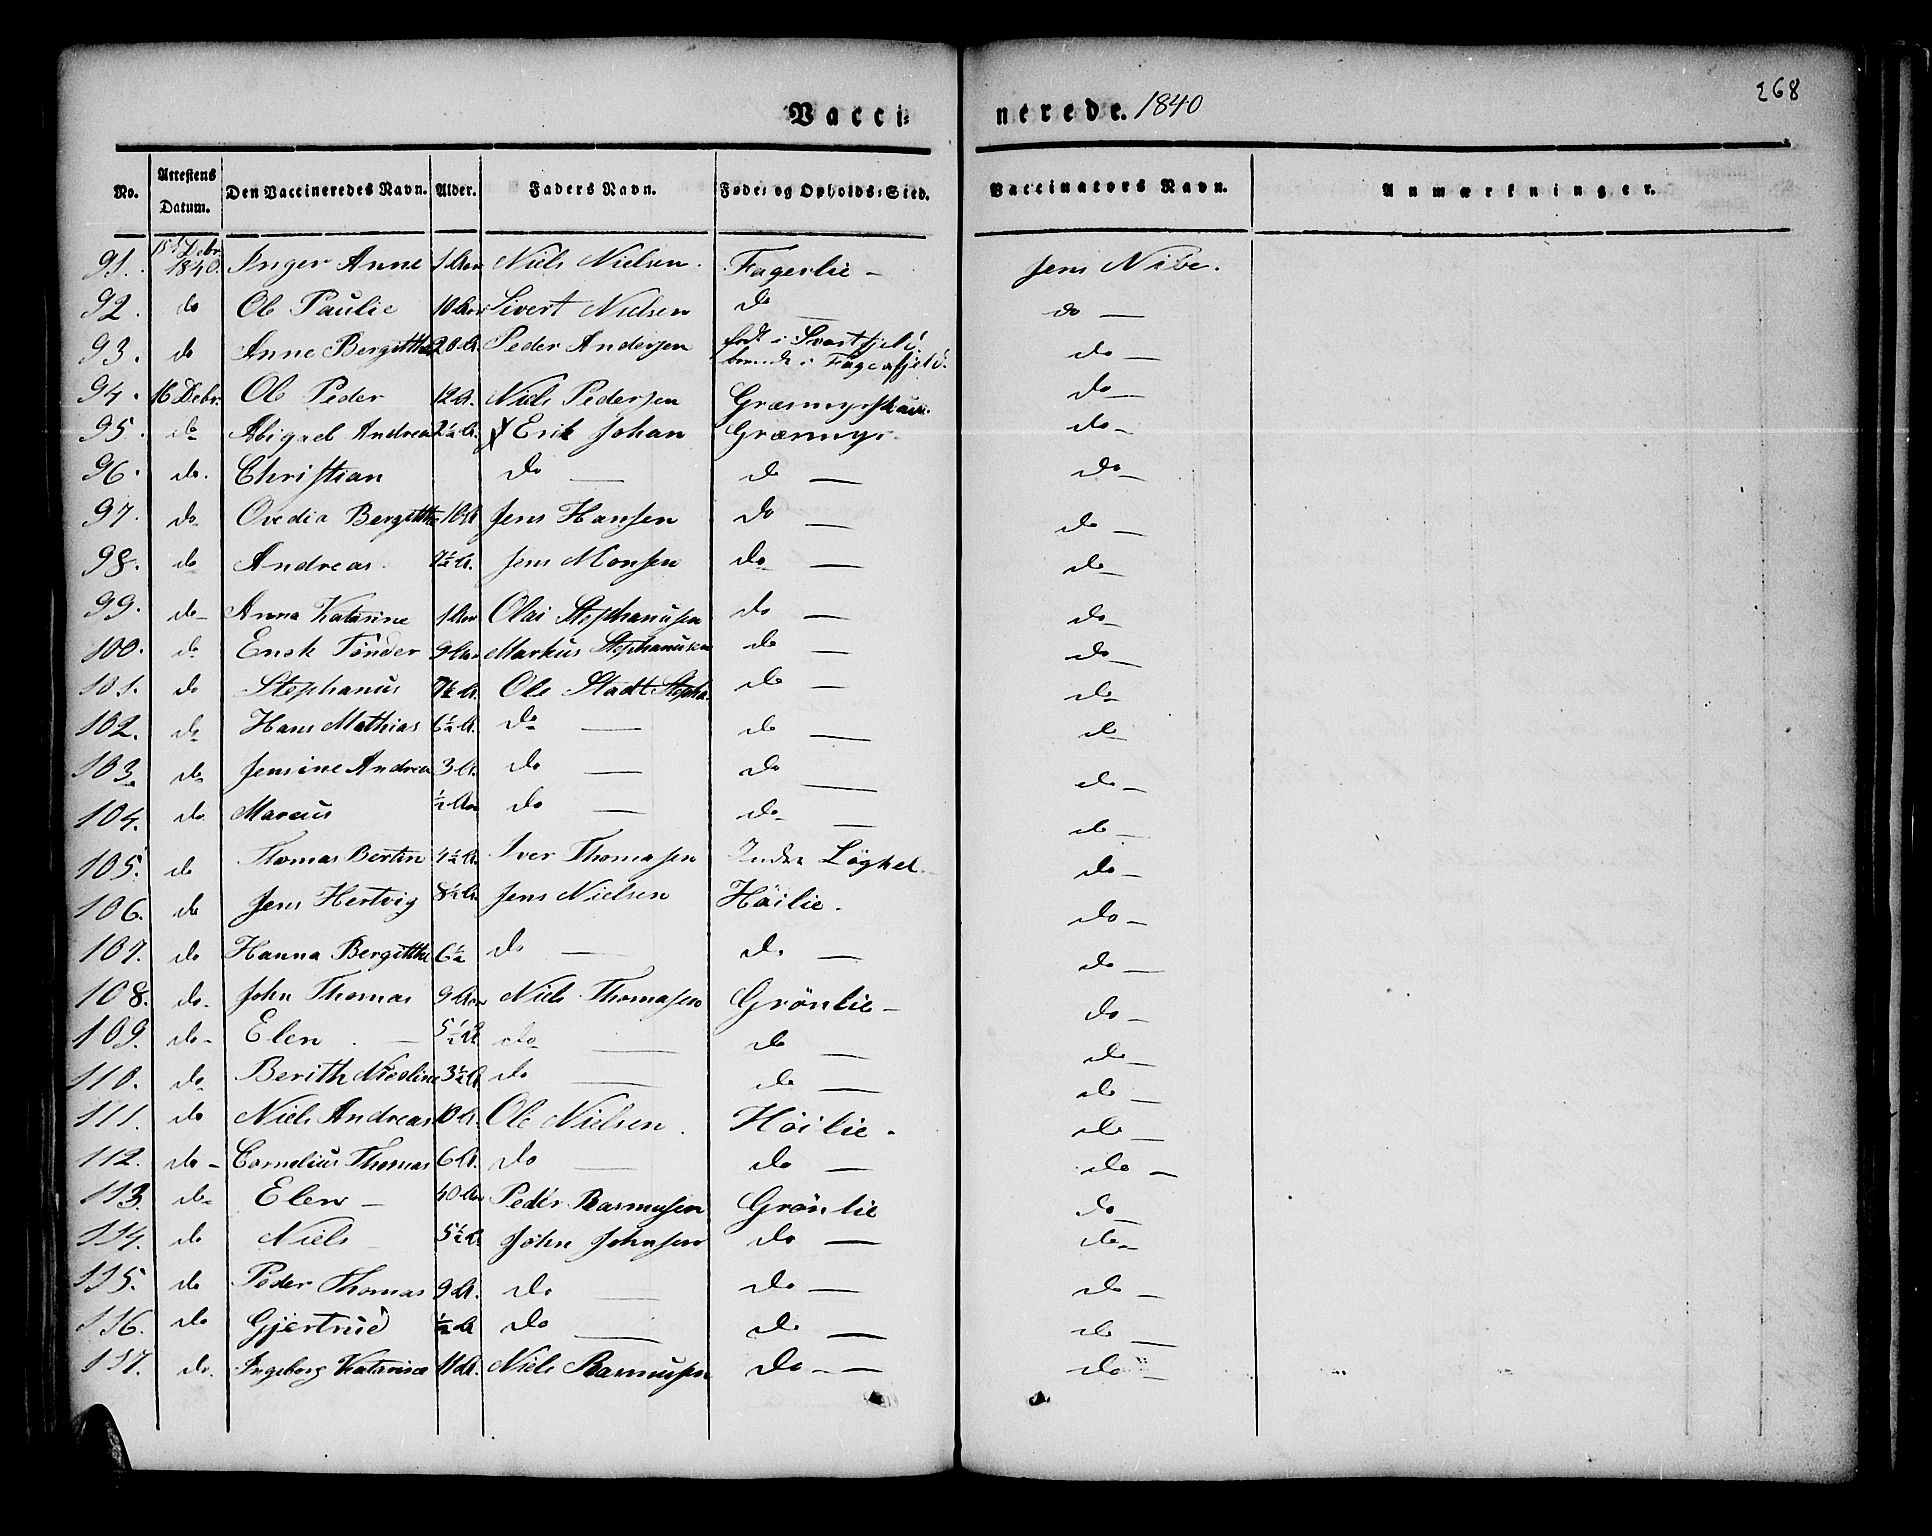 268
Vacci-
nerede. 1840
No. | Attestens Datum. | Den Vaccineredes Navn. | Alder. | Faders Navn. | Føde- og Opholds-Sted. | Vaccinators Navn. | Anmærkninger.
91. | 15 Debr 1840. | Inger Anne | 1 Aar | Niels Nielsen. | Fagerlie - | Jens Nibe.
92. | do | Ole Paulie | 10 Aar | Sivert Nielsen | do | do -
93. | do | Anne Bergitthe | 20 A. | Peder Andersen | født i Svartfjeld. boende i Fagerfjeld. | do -
94. | 16 Debr. | Ole Peder | 12 A. | Niels Pedersen | Græsmyrskav. | do -
95. | do | Abigael Andrea | 2½ A. | Erik Johan | Græsmyr. | do -
96. | do. | Christian | | do - | do - | do -
97. | do | Ovedia Bergitthe | 10 A | Jens Hansen | do - | do -
98. | do | Andreas. | 7½ A. | Jens Monsen | do - | do -
99. | do - | Anna Katarine | 1 Aar | Olai Stephanusen | do - | do -
100. | do | Enok Tönder | 9 Aar | Markus Stephanusen | do - | do -
101. | do | Stephanus | 7½ A. | Ole Stadt Stepha. | do - | do -
102. | do | Hans Mathias | 6½ A. | do - | do - | do -
103. | do | Jensine Andrea | 3 A. | do - | do - | do -
104. | do | Marcus | ½ Aar | do - | do - | do -
105. | do | Thomas Bertin | 4½ A. | Iver Thomasen | Indre Löghet. | do -
106. | do | Jens Hertvig | 8½ A. | Jens Nielsen | Höilie. | do -
107. | do | Hanna Bergitthe | 6½ | do - | do - | do -
108. | do - | John Thomas | 9 Aar | Niels Thomasen | Grönlie - | do -
109. | do - | Elen . - | 5½ A | do - | do - | do -
110. | do - | Berith Nicoline | 3½ A | do - | do - | do -
111. | do | Niels Andreas | 10 A. | Ole Nielsen. | Höilie. | do -
112. | do - | Cornelius Thomas | 6 A. | do - | do - | do -
113. | do - | Elen - | 40 Aar | Peder Rasmusen | Grönlie | do -
114. | do | Niels - | 5½ A. | John Johnsen | do - | do -
115. | do | Peder Thomas | 9 A. | do - | do - | do -
116. | do | Gjertrud | ½ A | do - | do - | do -
117. | do. | Ingeborg Katarina | 11 A. | Niels Rasmusen | do - - | do -